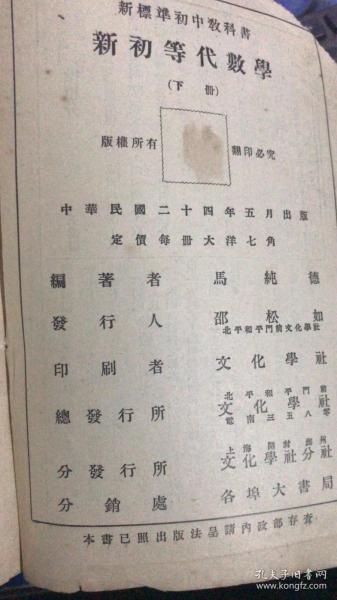 新標準初中教科書
新初等代數學
（下冊）
版權所有 翻印必究
中華民國二十四年五月出版
定價每冊大洋七角
編著者 馬純德
發行人 邵松如
北平和平門前文化學社
印刷者 文化學社
北平和平門前
總發行所 文化學社
電南三五八零
上海開封鄭州
分發行所 文化學社分社
分銷處 各埠大書局
本書已照出版法呈請內政部存查
孔夫子旧书网
kongfz.com